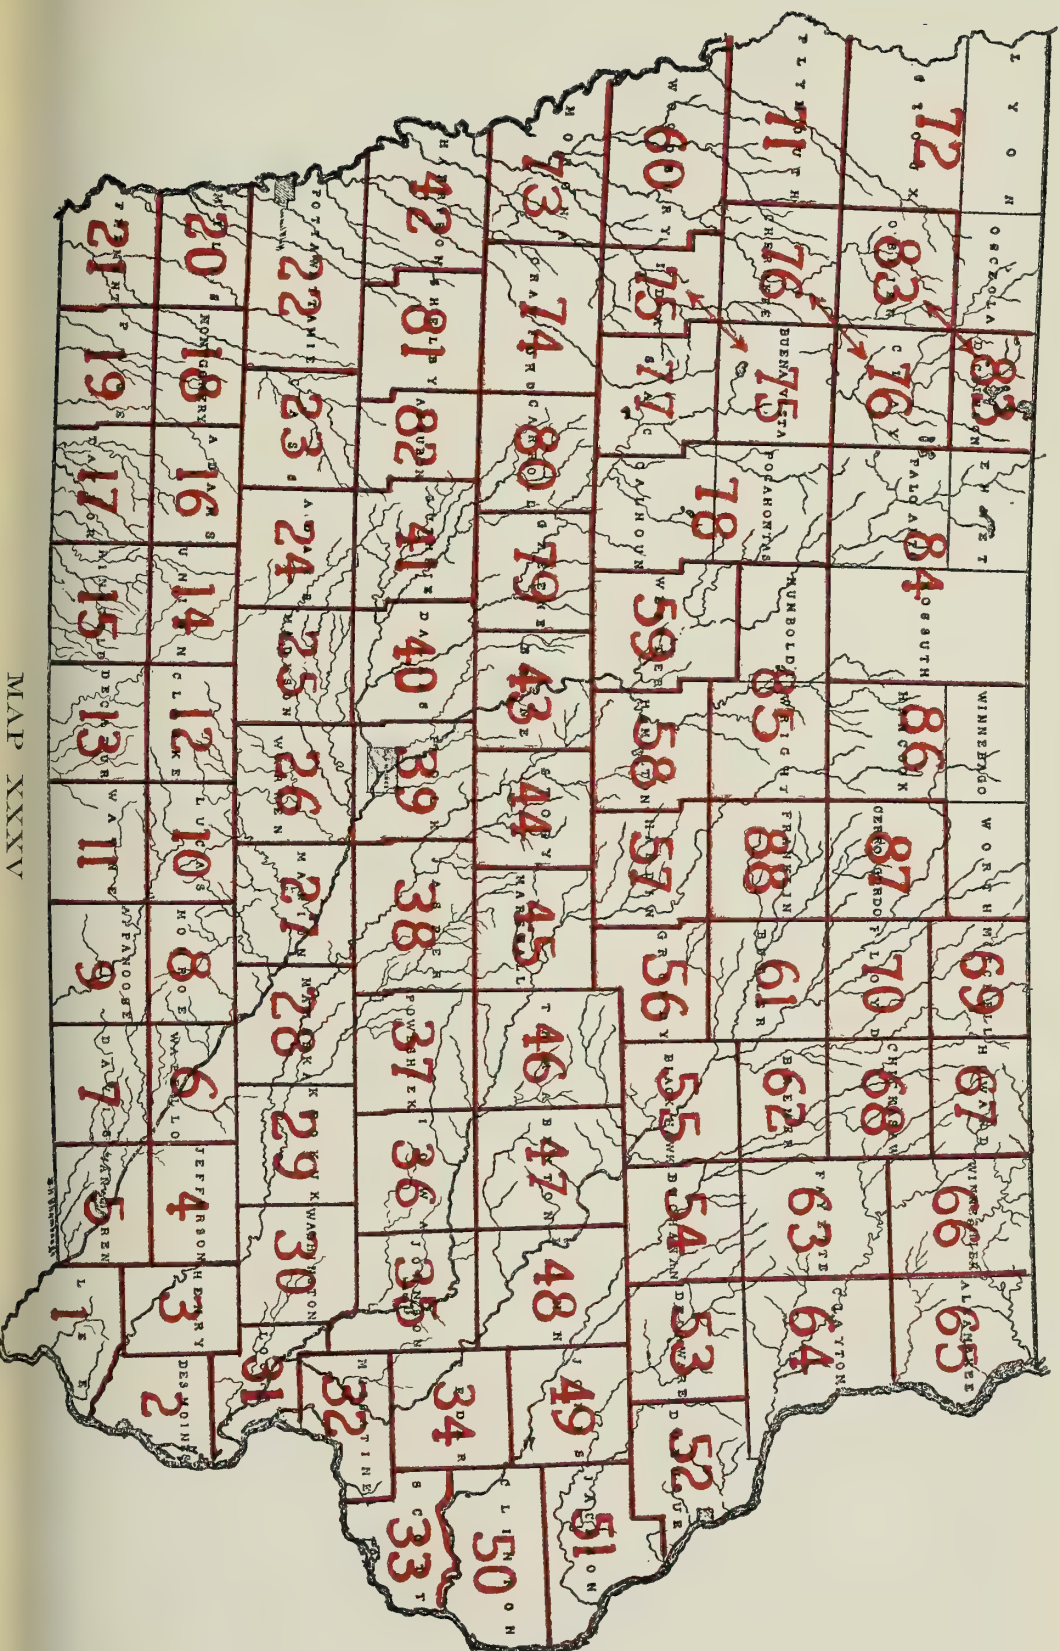 LYON
OSCEOLA
DICKINSON
EMMET
KOSSUTH
WINNEBAGO
WORTH
MITCHELL
HOWARD
WINNESHIEK
ALLAMAKEE
72
83
83
84
86
87
69
67
66
65
SIOUX
O'BRIEN
CLAY
PALO ALTO
HANCOCK
CERRO GORDO
FLOYD
CHICKASAW
FAYETTE
CLAYTON
76
70
68
63
64
PLYMOUTH
CHEROKEE
BUENA VISTA
POCAHONTAS
HUMBOLDT
WRIGHT
FRANKLIN
BUTLER
BREMER
71
76
75
78
85
88
61
62
WOODBURY
IDA
SAC
CALHOUN
WEBSTER
HAMILTON
HARDIN
GRUNDY
BLACK HAWK
BUCHANAN
DELAWARE
DUBUQUE
60
75
77
59
58
57
56
55
54
53
52
MONONA
CRAWFORD
CARROLL
GREENE
BOONE
STORY
MARSHALL
TAMA
BENTON
LINN
JONES
JACKSON
73
74
80
79
43
44
45
46
47
48
49
51
HARRISON
SHELBY
AUDUBON
GUTHRIE
DALLAS
POLK
JASPER
POWESHIEK
IOWA
JOHNSON
CEDAR
CLINTON
42
81
82
41
40
39
38
37
36
35
34
50
SCOTT
33
POTTAWATTAMIE
CASS
ADAIR
MADISON
WARREN
MARION
MAHASKA
KEOKUK
WASHINGTON
LOUISA
MUSCATINE
22
23
24
25
26
27
28
29
30
31
32
MILLS
MONTGOMERY
ADAMS
UNION
CLARKE
LUCAS
MONROE
WAPELLO
JEFFERSON
HENRY
DES MOINES
20
18
16
14
12
10
8
6
4
3
2
FREMONT
PAGE
TAYLOR
RINGGOLD
DECATUR
WAYNE
APPANOOSE
DAVIS
VAN BUREN
LEE
21
19
17
15
13
11
9
7
5
1
MAP XXXV